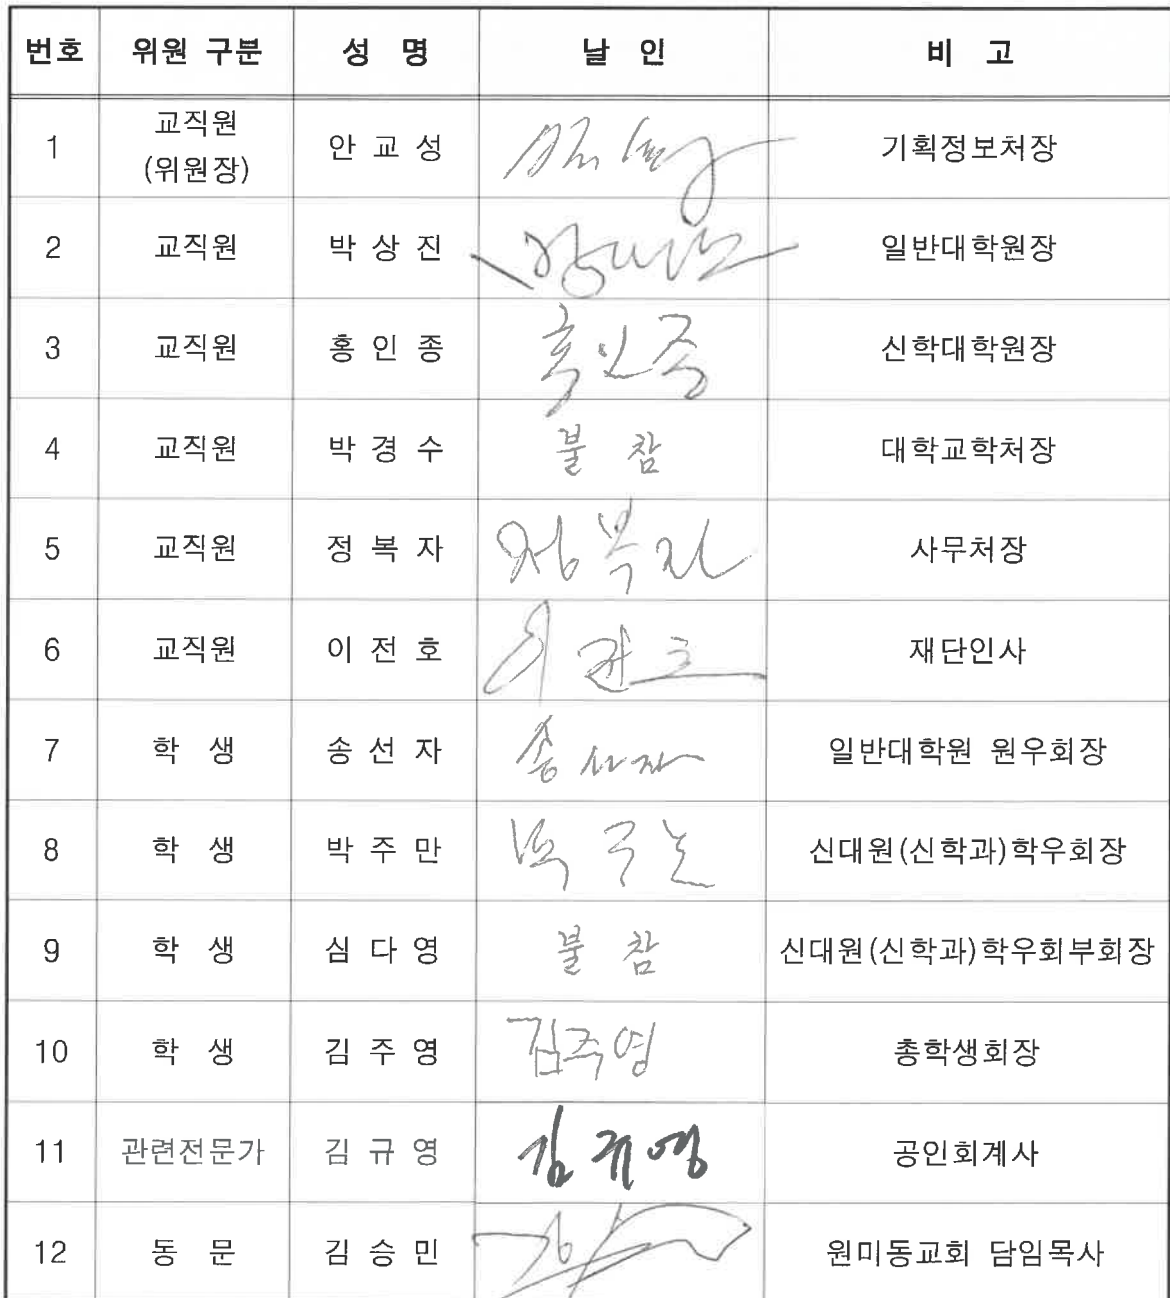 번호 위원 구분 성 명 날 인 비 고
1 교직원 (위원장) 안 교 성 기획정보처장
2 교직원 박 상 진 일반대학원장
3 교직원 홍 인 종 홍인종 신학대학원장
4 교직원 박 경 수 불 참 대학교학처장
5 교직원 정 복 자 정복자 사무처장
6 교직원 이 전 호 이전호 재단인사
7 학 생 송 선 자 송선자 일반대학원 원우회장
8 학 생 박 주 만 박주만 신대원(신학과)학우회장
9 학 생 심 다 영 불 참 신대원(신학과)학우회부회장
10 학 생 김 주 영 김주영 총학생회장
11 관련전문가 김 규 영 김규영 공인회계사
12 동 문 김 승 민 원미동교회 담임목사